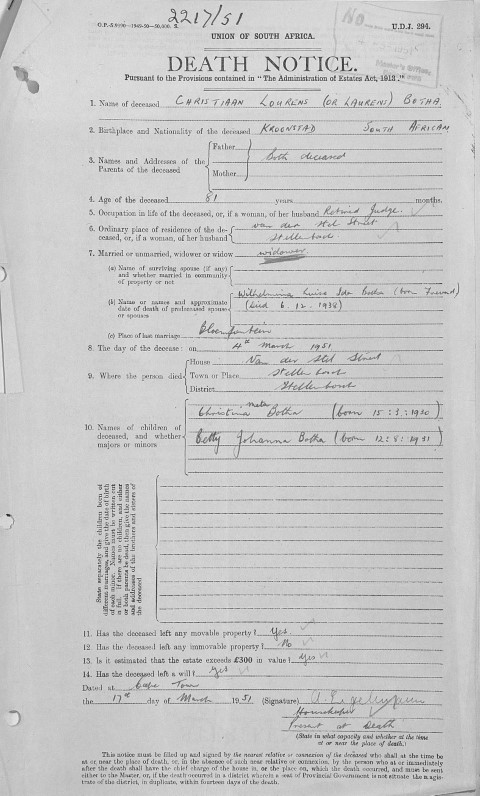 G.P.-S.9490—1949-50—50,000. S.
2217/51
U.D.J. 294.
No.
UNION OF SOUTH AFRICA.
DEATH NOTICE.
Pursuant to the Provisions contained in "The Administration of Estates Act, 1913."
1. Name of deceased CHRISTIAAN LOURENS (OR LAURENS) BOTHA.
2. Birthplace and Nationality of the deceased KROONSTAD SOUTH AFRICAN
3. Names and Addresses of the Parents of the deceased
Father
Both deceased
Mother
4. Age of the deceased 81 years months.
5. Occupation in life of the deceased, or, if a woman, of her husband Retired Judge.
6. Ordinary place of residence of the deceased, or, if a woman, of her husband
van der Stel Street
Stellenbosch
7. Married or unmarried, widower or widow widower
(a) Name of surviving spouse (if any) and whether married in community of property or not
(b) Names and approximate date of death of predeceased spouse or spouses
Wilhelmina Luisa Ida Botha (born Freund)
(died 6.12.1938)
(c) Place of last marriage Bloemfontein
8. The day of the decease: on 4th March 1951
9. Where the person died
House Van der Stel Street
Town or Place Stellenbosch
District Stellenbosch
10. Names of children of deceased, and whether majors or minors
Christina Meta Botha (born 15:3:1910)
Betty Johanna Botha (born 12:8:1911)
State separately the children born of different marriages, and give the date of birth of each minor. Names must be written out in full. If there are no children, and either or both parents be dead, then give the names and addresses of the brothers and sisters of the deceased
11. Has the deceased left any movable property? Yes.
12. Has the deceased left any immovable property? No
13. Is it estimated that the estate exceeds £300 in value? Yes
14. Has the deceased left a will? Yes
Dated at Cape Town
the 17th day of March 1951. (Signature)
Housekeeper
Present at Death
(State in what capacity and whether at the time at or near the place of death).
This notice must be filled up and signed by the nearest relative or connexion of the deceased who shall at the time be
at or near the place of death, or, in the absence of such near relative or connexion, by the person who at or immediately
after the death shall have the chief charge of the house in, or the place on, which the death occurred, and must be sent
either to the Master, or, if the death occurred in a district wherein a seat of Provincial Government is not situate the magis-
trate of the district, in duplicate, within fourteen days of the death.